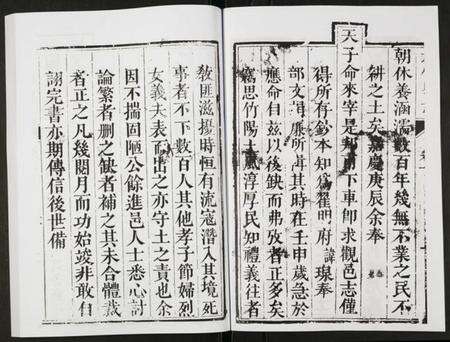 朝休養涵濡數百年幾無不業之民不
耕之土矣嘉慶庚辰余奉
天子命來宰是邦甫下車即求觀邑志僅
得所有鈔本知爲翟明府諱璵奉
部文所其時在壬申歲急於
應命自茲以後缺而弗攷者正多矣
竊思竹陽士庶淳厚民知禮義往者
教匪滋擾時恒有流寇潛入其境死
事者不下數百人其他孝子節婦烈
女義夫表而出之亦守土之責也余
因不揣固陋公餘進邑人士悉心討
論繁者刪之缺者補之其未合體裁
者正之凡幾閱月而功始竣非敢自
詡完書亦期傳信後世備